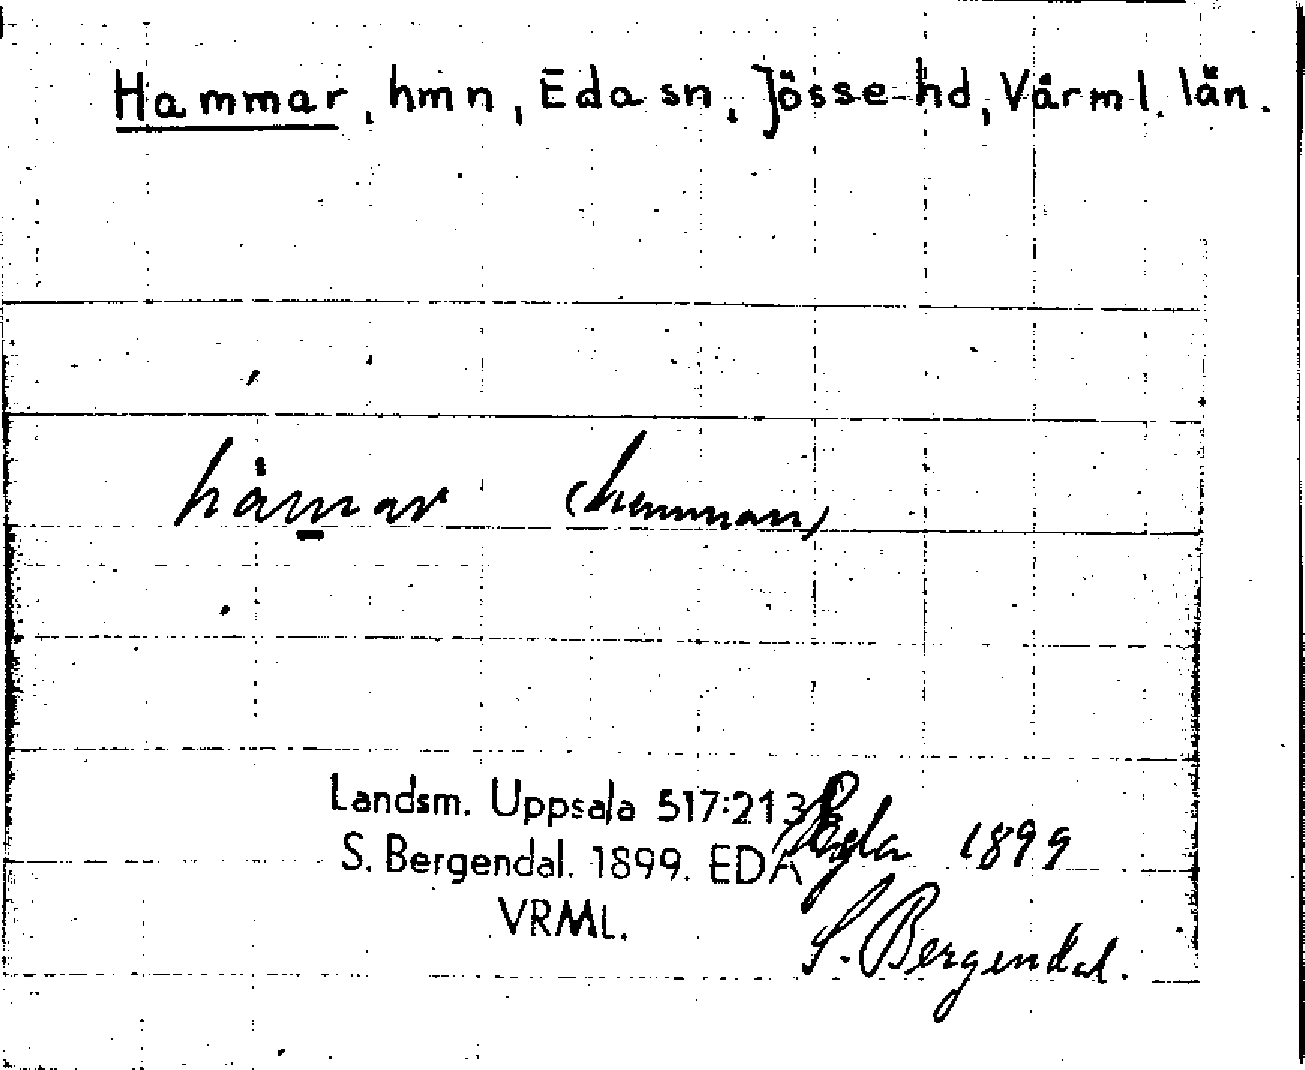 Hammar, hmn, Eda sn, Jösse hd, Värml. län.
håmar (hemman)
Landsm. Uppsala 517:213
Eda 1899
S. Bergendal. 1899. EDA
VRML.
S. Bergendal.